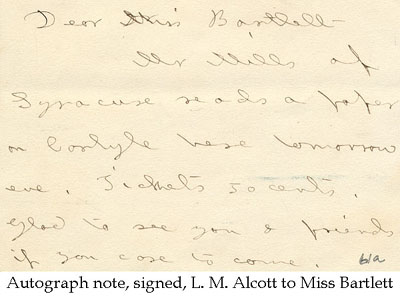 Dear Miss Bartlett—
Mr Mills of
Syracuse reads a paper
on Carlyle here tomorrow
eve. Tickets 50 cents.
Glad to see you & friends
if you care to come.
Autograph note, signed, L. M. Alcott to Miss Bartlett